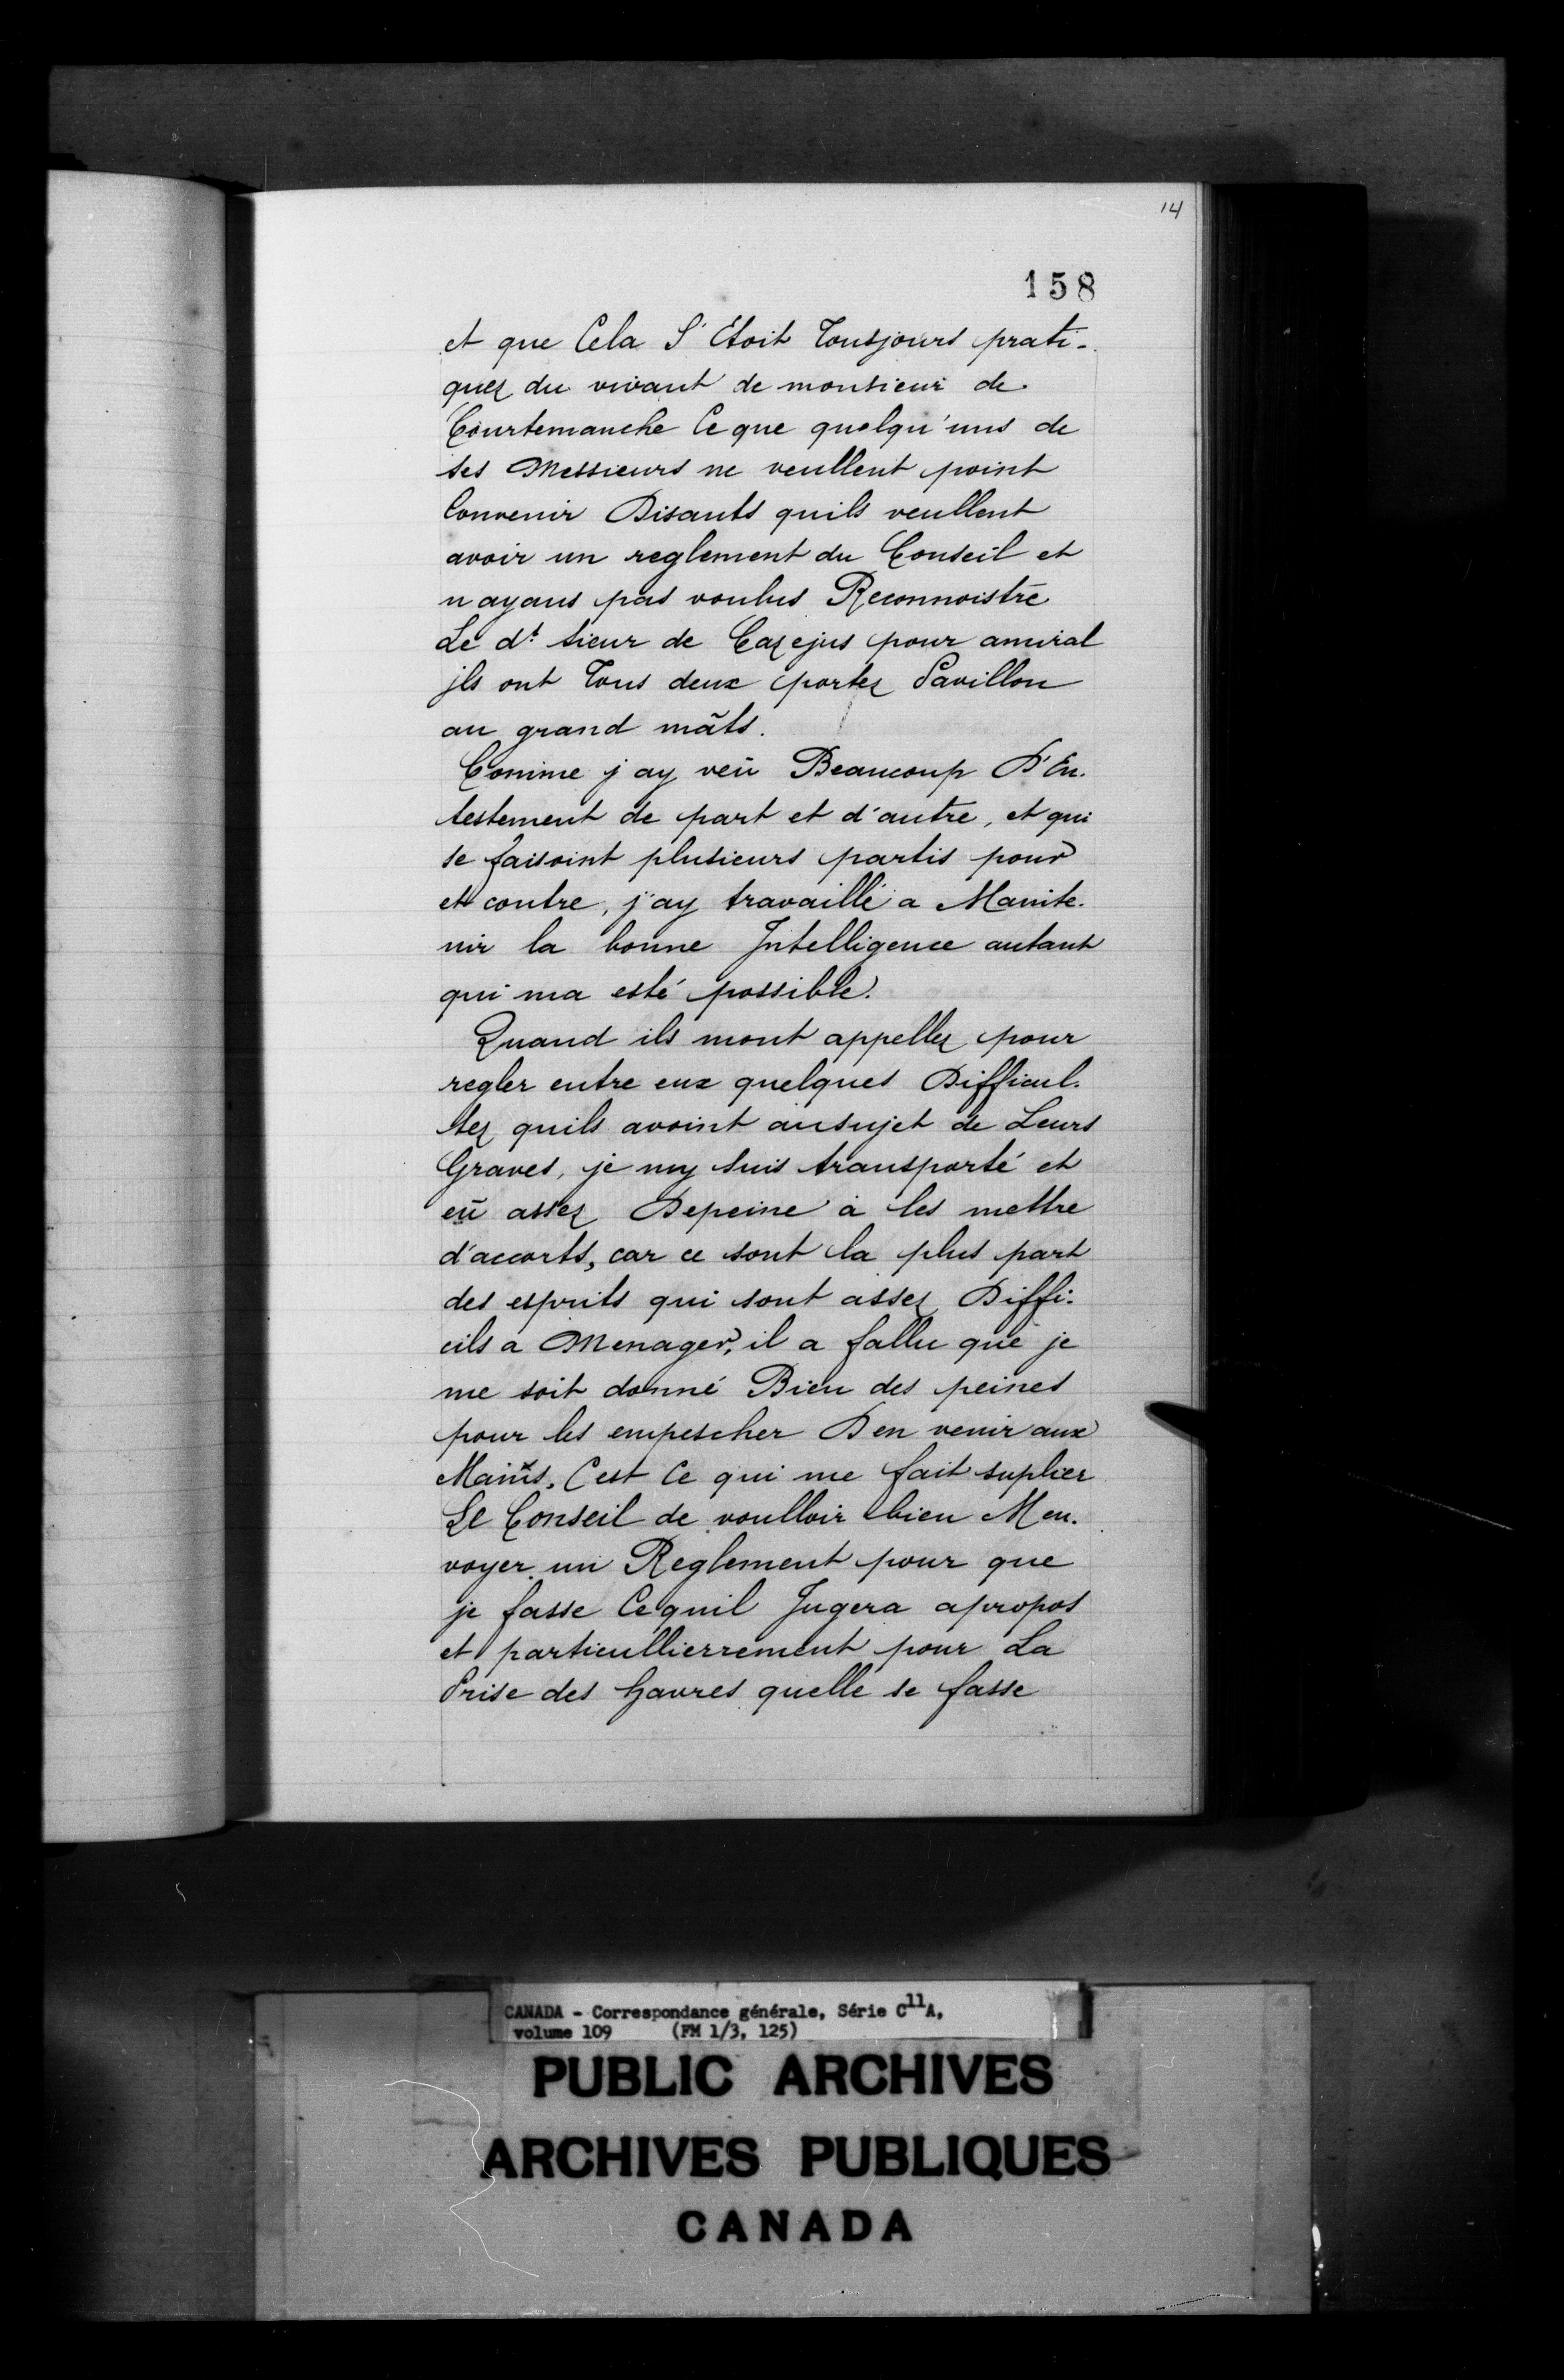 14
158
et que Cela S'Etoit Tousjours prati-
quez du vivant de monsieur de
Courtemanche Ce que quelqu'uns de
ses Messieurs ne veullent point
Convenir Disants quils veullent
avoir un reglement du Conseil et
n ayans pas voulus Reconnoistre
Le dt. sieur de Cazejus pour amiral
jls ont Tous deux portez Pavillon
au grand mâts.
Comme j ay veü Beaucoup D'En-
testement de part et d'autre, et qui
se faisoint plusieurs partis pour
et contre, j'ay travaillé a Mainte-
nir la bonne Intelligence autant
qui ma esté possible.
Quand ils mont appellez pour
regler entre eux quelques Difficul-
tez quils avoint au sujet de Leurs
Graves, je my suis transporté et
eü assez Depeine à les mettre
d'accorts, car ce sont la plus part
des esprits qui sont assez Diffi-
cils a Menager, il a fallu que je
me soit donné Bien des peines
pour les empescher Den venir aux
Mains. C'est Ce qui me fait suplier
Le Conseil de voulloir bien Men-
voyer un Reglement pour que
je fasse Cequil Jugera apropos
et particullierrement pour La
Prise des havres quelle se fasse
CANADA - Correspondance générale, Série C11A,
volume 109 (FM 1/3, 125)
PUBLIC ARCHIVES
ARCHIVES PUBLIQUES
CANADA